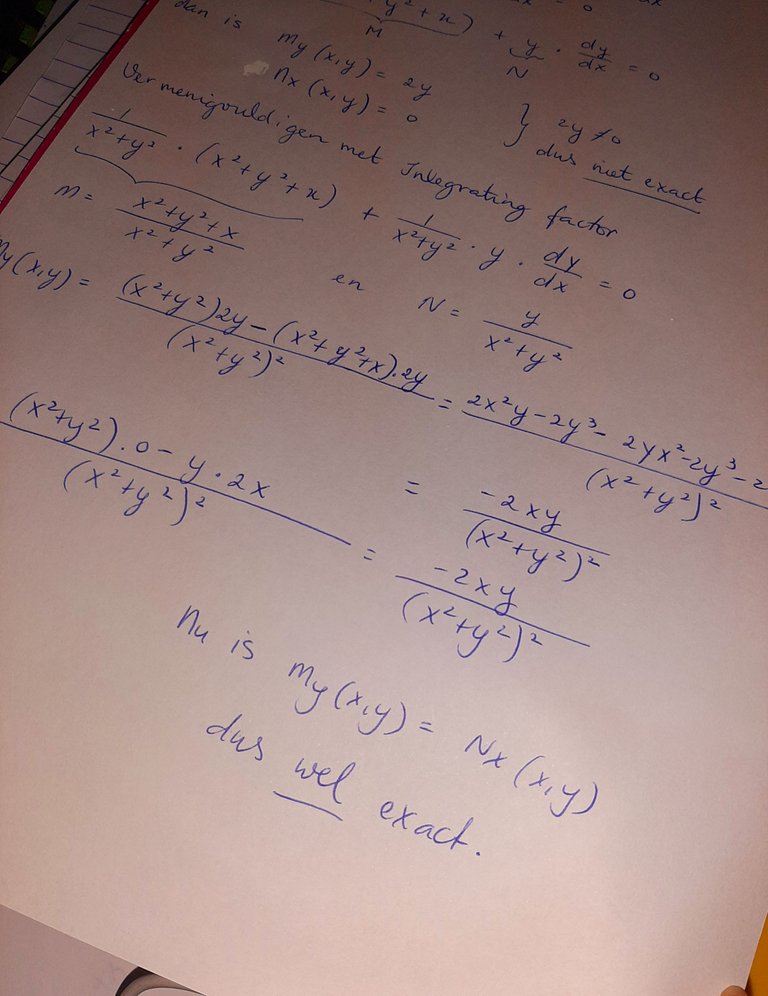 y²+x) + y · dy/dx = 0
M N
dan is My(x,y) = 2y
Nx(x,y) = 0 } 2y ≠ 0 dus niet exact
Vermenigvuldigen met Integrating factor
1/(x²+y²) · (x²+y²+x) + 1/(x²+y²) · y · dy/dx = 0
M = (x²+y²+x)/(x²+y²) en N = y/(x²+y²)
My(x,y) = ((x²+y²)2y-(x²+y²+x)·2y)/(x²+y²)² = (2x²y-2y³-2yx²-2y³-2)/(x²+y²)²
= -2xy/(x²+y²)²
((x²+y²)·0-y·2x)/(x²+y²)² = -2xy/(x²+y²)²
Nu is My(x,y) = Nx(x,y)
dus wel exact.